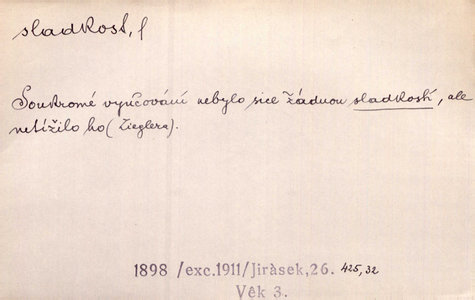 sladkost, f
Soukromé vyučování nebylo sice žádnou sladkostí, ale
netížilo ho (Zieglera).
1898 /exc.1911/Jiràsek,26. 425,32
Vêk 3.